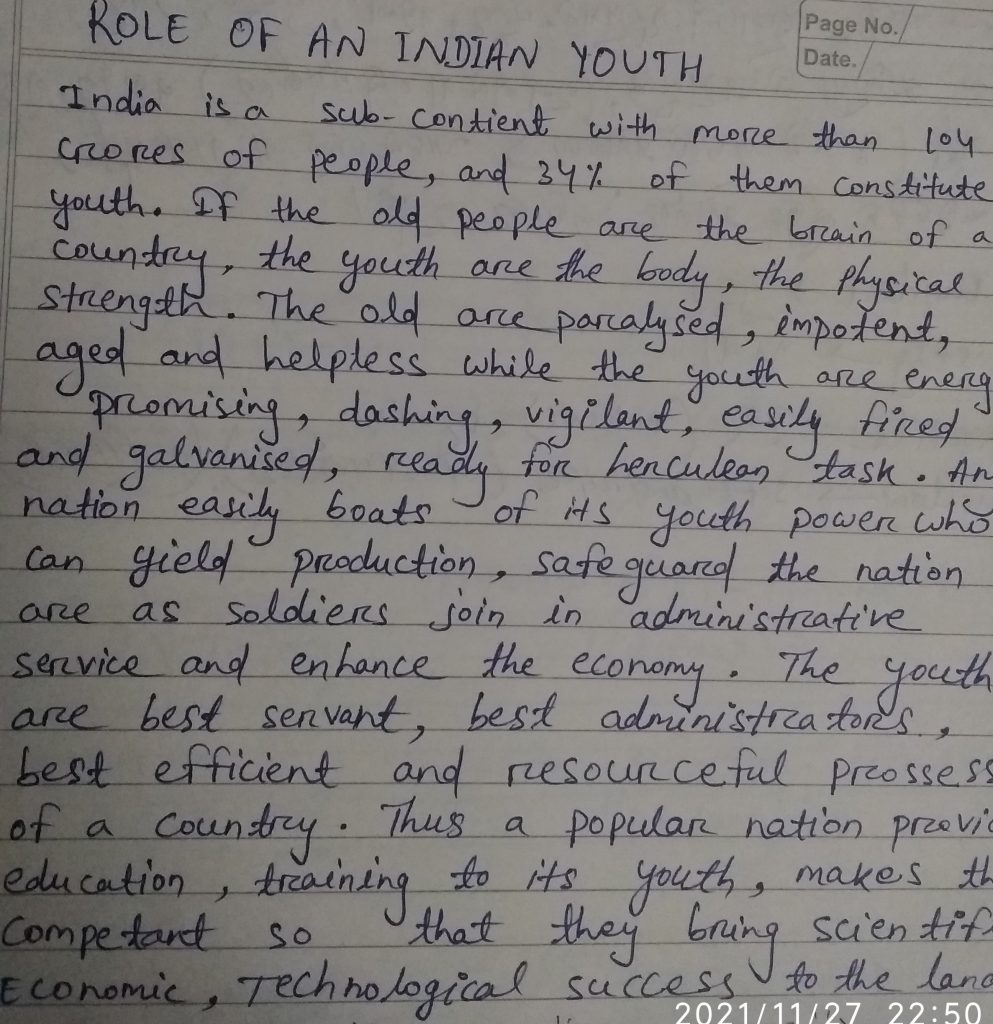 ROLE OF AN INDIAN YOUTH
Page No.
Date.
India is a sub-contient with more than 104
crores of people, and 34% of them constitute
youth. If the old people are the brain of a
country, the youth are the body, the physical
strength. The old are paralysed, impotent,
aged and helpless while the youth are energ
promising, dashing, vigilant, easily fired
and galvanised, ready for herculean task. An
nation easily boats of its youth power who
can yield production, safeguard the nation
are as soldiers join in administrative
service and enhance the economy. The youth
are best servant, best administrators,
best efficient and resourceful prossess
of a country. Thus a popular nation provi
education, training to its youth, makes th
competant so that they bring scientif
Economic, Technological success to the land
2021/11/27 22:50